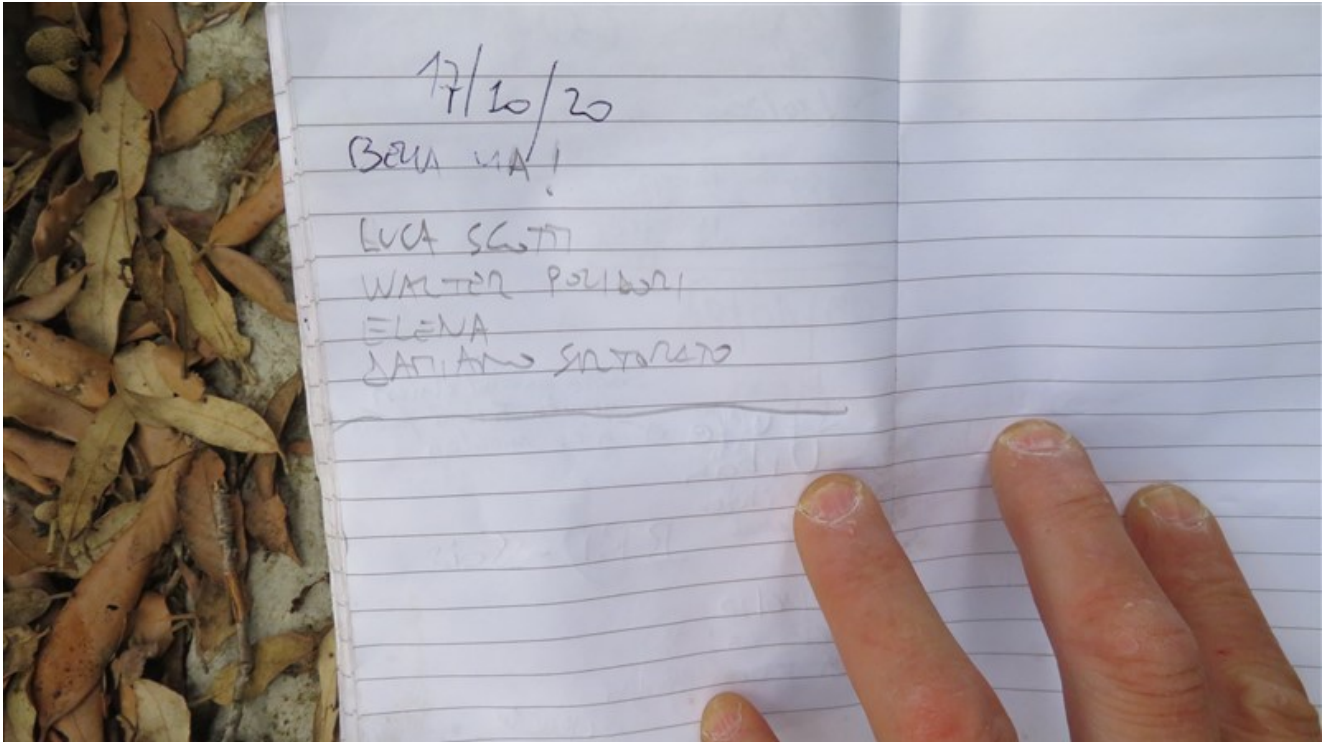 17/10/20
BELLA VIA!
LUCA SCOTTI
WALTER POLIDORI
ELENA
DAMIANO